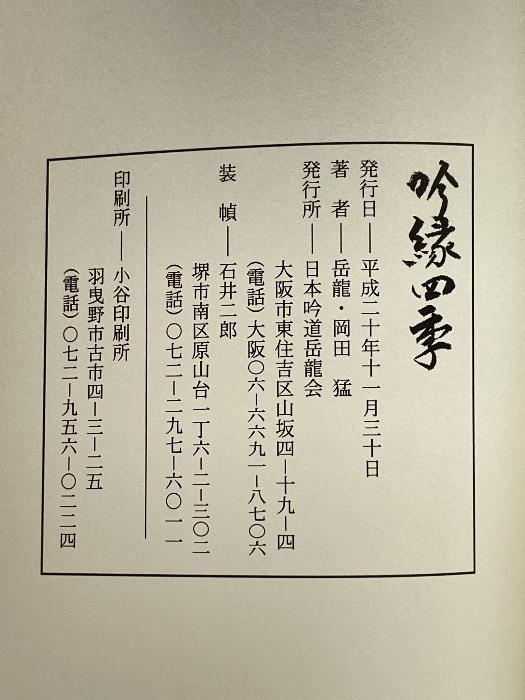 吟縁四季
発行日―平成二十年十一月三十日
著　者―岳龍・岡田　猛
発行所―日本吟道岳龍会
大阪市東住吉区山坂四―十九―四
（電話）大阪〇六―六六九一―八七〇六
装　幀―石井二郎
堺市南区原山台一丁六―二―三〇二
（電話）〇七二―二九七―六〇一一
印刷所―小谷印刷所
羽曳野市古市四―三―二五
（電話）〇七二―九五六―〇二二四